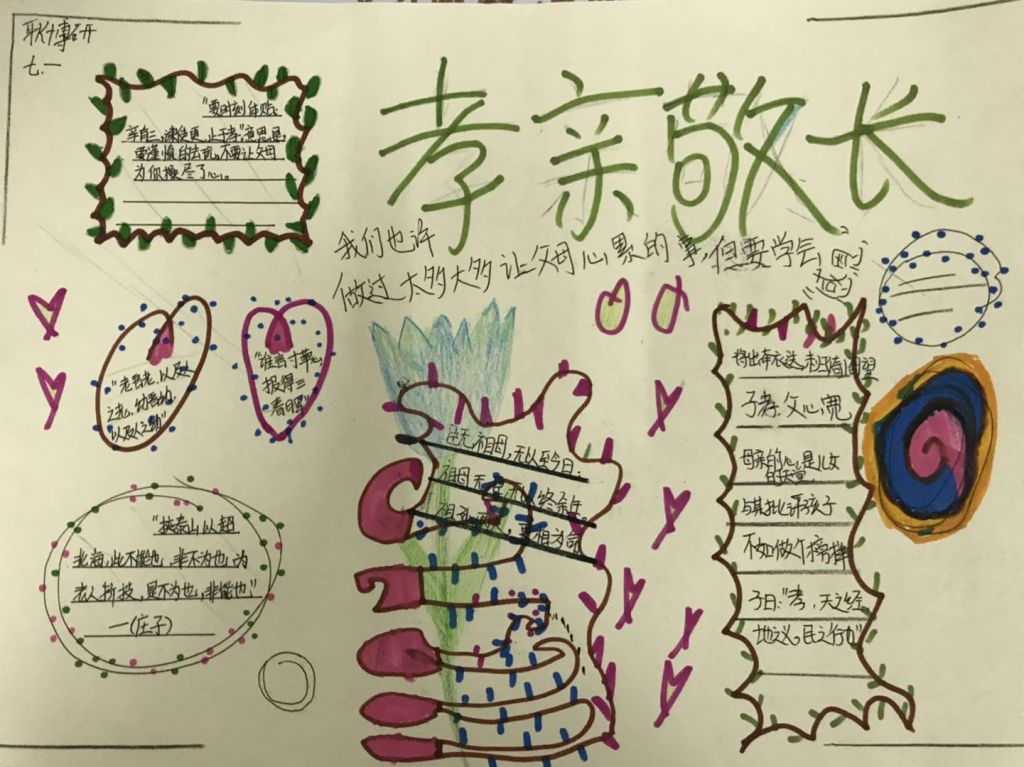 耿博研
七.一
孝亲敬长
我们也许
做过太多太多让父母心累的事,但要学会
"要时刻
辛自三
要谨慎的去玩。不要让父母
为你操尽了心。
"老吾老,以及人
之老,幼吾幼,
以及人之幼"
"谁言寸草心,
报得三
春日晖"
"挟泰山以超
北海,此不能也,非不为也,为
老人折枝,是不为也,非能也"
—(庄子)
注无祖母,无以至今日.
祖母无 无以终余年
祖孙 更相为命
子孝父心宽
母亲的心,是儿女
的天堂
与其批评孩子
不如做个榜样
子曰:"孝,天之经
地之义。民之行也"